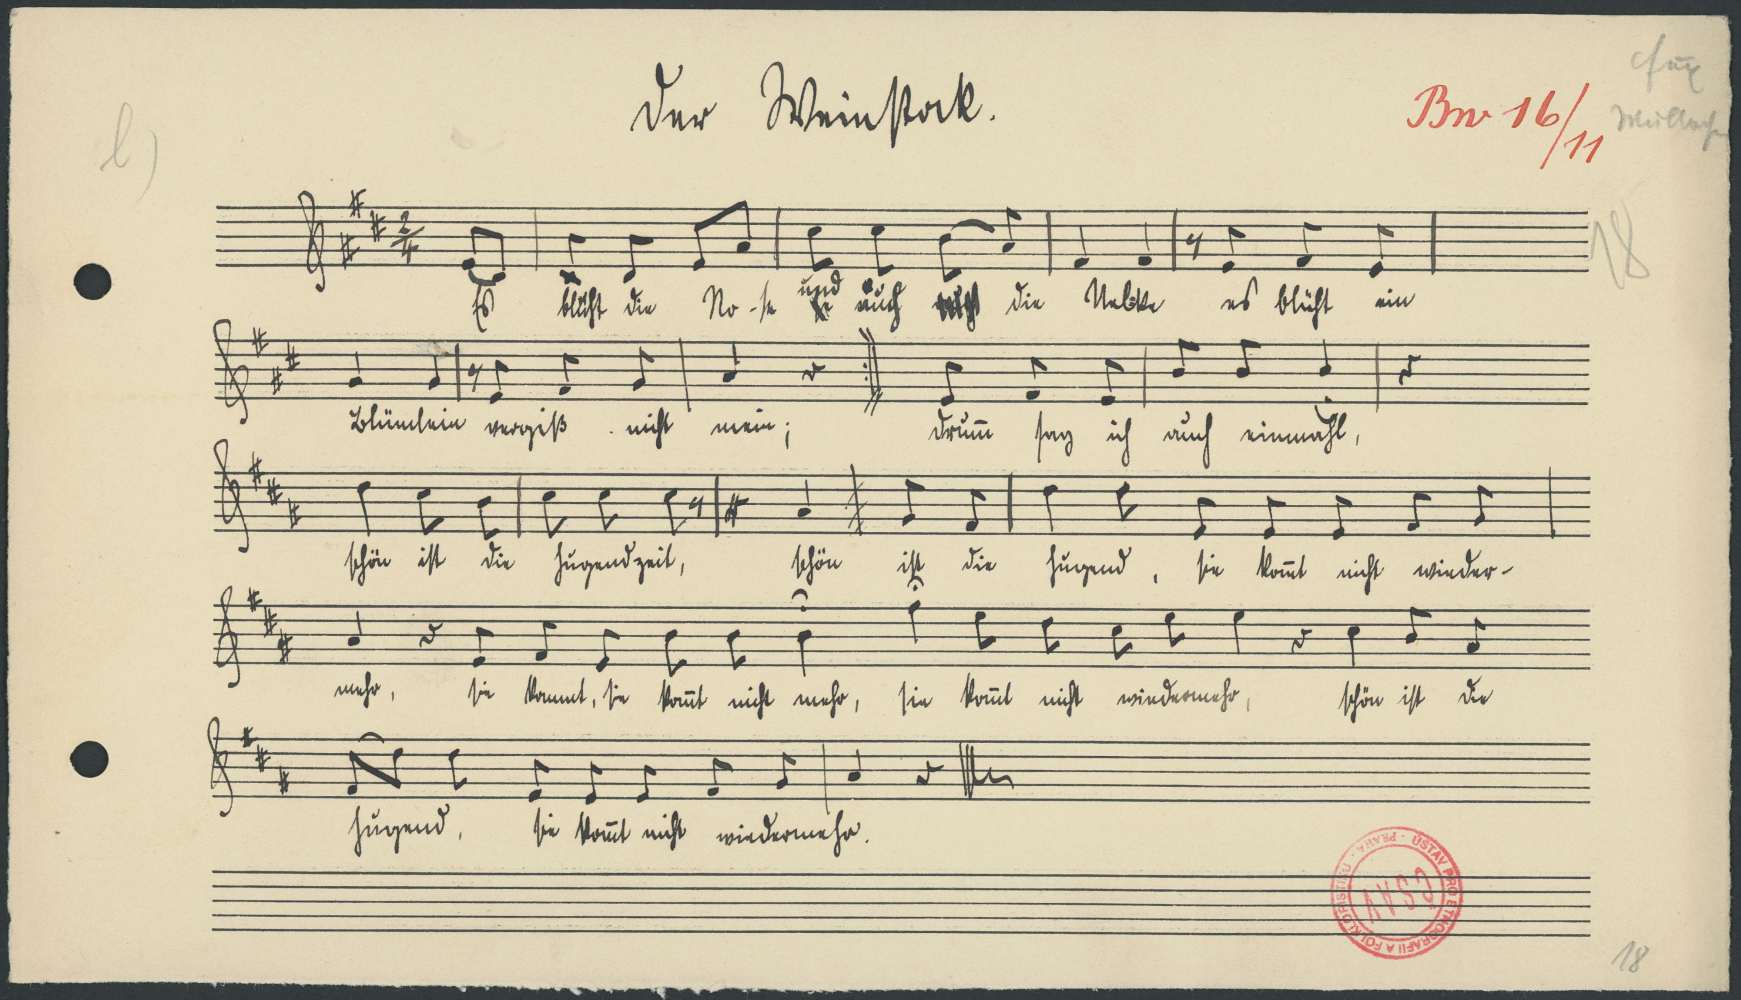 Der Weinstock.
Bw 16/11
b)
18
2/4
Es blüht die Ro-se und auch die Nelke es blüht ein
Blümlein vergiß nicht mein; drum̄ sag ich auch einmahl,
schön ist die Jugendzeit, schön ist die Jugend, sie kom̄t nicht wieder-
mehr, sie kommt, sie kom̄t nicht mehr, sie kom̄t nicht wiedermehr, schön ist die
Jugend, sie kom̄t nicht wiedermehr.
ÚSTAV PRO ETNOGRAFII A FOLKLORISTIKU · PRAHA ·
ČSAV
18